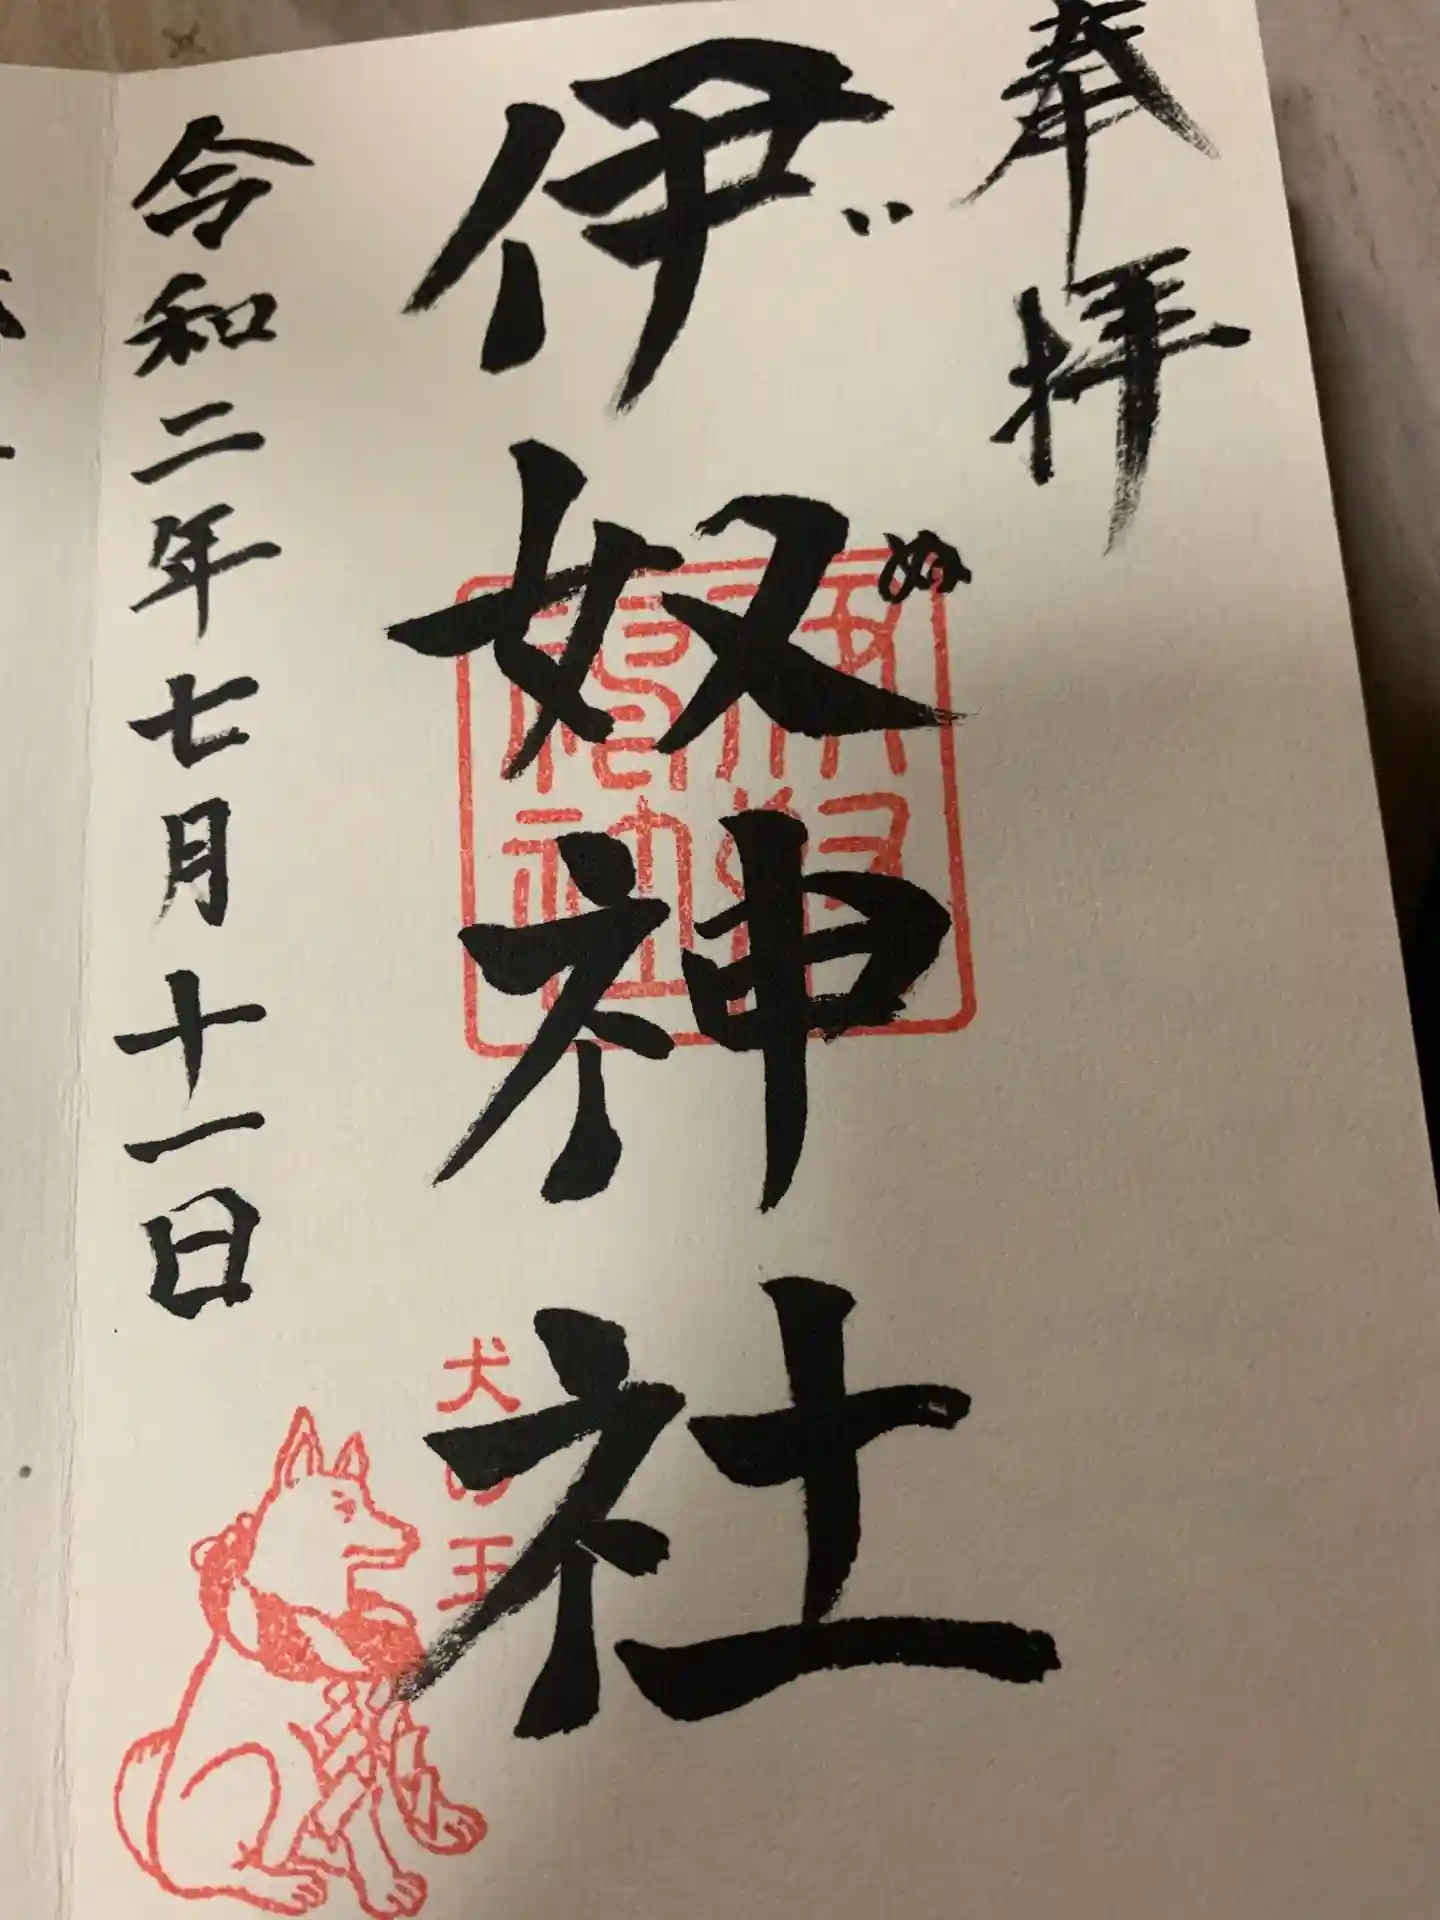 奉拝
伊奴神社
い
ぬ
令和二年七月十一日
犬の王